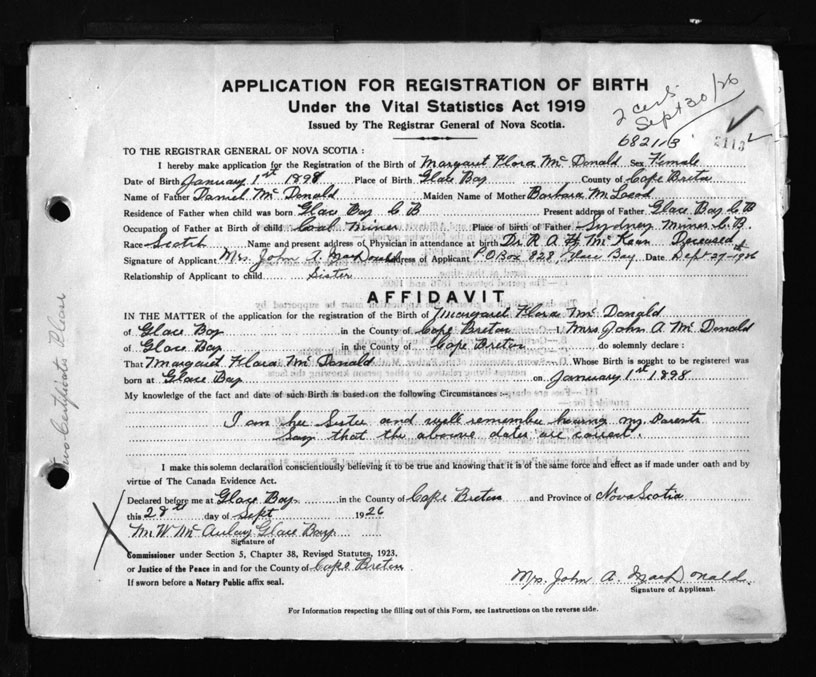 APPLICATION FOR REGISTRATION OF BIRTH
Under the Vital Statistics Act 1919
Issued by The Registrar General of Nova Scotia.
2 certs
Sept 30/26
68211B
2113
TO THE REGISTRAR GENERAL OF NOVA SCOTIA:
I hereby make application for the Registration of the Birth of Margaret Flora McDonald Sex Female
Date of Birth January 1st 1898 Place of Birth Glace Bay County of Cape Breton
Name of Father Daniel McDonald Maiden Name of Mother Barbara McLeod
Residence of Father when child was born Glace Bay C B Present address of Father Glace Bay C B
Occupation of Father at Birth of child Coal Miner Place of birth of Father Sydney Mines C.B.
Race Scotch Name and present address of Physician in attendance at birth Dr. R. A. H. McKeen Deceased
Signature of Applicant Mrs. John A. MacDonald Address of Applicant P O Box 828, Glace Bay Date Sept 27th 1926
Relationship of Applicant to child Sister
AFFIDAVIT
IN THE MATTER of the application for the registration of the Birth of Margaret Flora McDonald
of Glace Bay in the County of Cape Breton I, Mrs. John A McDonald
of Glace Bay in the County of Cape Breton do solemnly declare:
That Margaret Flora McDonald Whose Birth is sought to be registered was
born at Glace Bay on January 1st 1898
My knowledge of the fact and date of such Birth is based on the following Circumstances:-
I am her Sister and well remember hearing my Parents
Say that the above dates are correct.
I make this solemn declaration conscientiously believing it to be true and knowing that it is of the same force and effect as if made under oath and by
virtue of The Canada Evidence Act.
Declared before me at Glace Bay in the County of Cape Breton and Province of Nova Scotia
this 28th day of Sept 1926
M. W. McAulay Glace Bay
Signature of
Commissioner under Section 5, Chapter 38, Revised Statutes, 1923.
or Justice of the Peace in and for the County of Cape Breton
If sworn before a Notary Public affix seal.
Mrs. John A. MacDonald.
Signature of Applicant.
For Information respecting the filling out of this Form, see Instructions on the reverse side.
Two Certificates Please